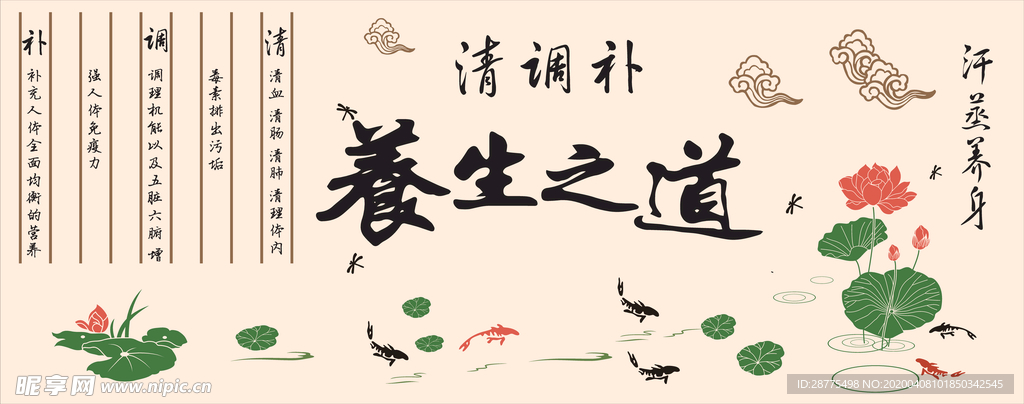 汗蒸养身
清调补
養生之道
清
清血 清肠 清肺 清理体内
毒素排出污垢
调
调理机能以及五脏六腑 增
强人体免疫力
补
补充人体全面均衡的营养
昵享网 www.nipic.cn
ID:28775498 NO:20200408101850342545